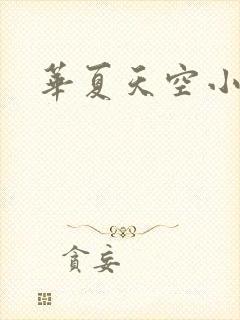 華夏天空小
貪妄